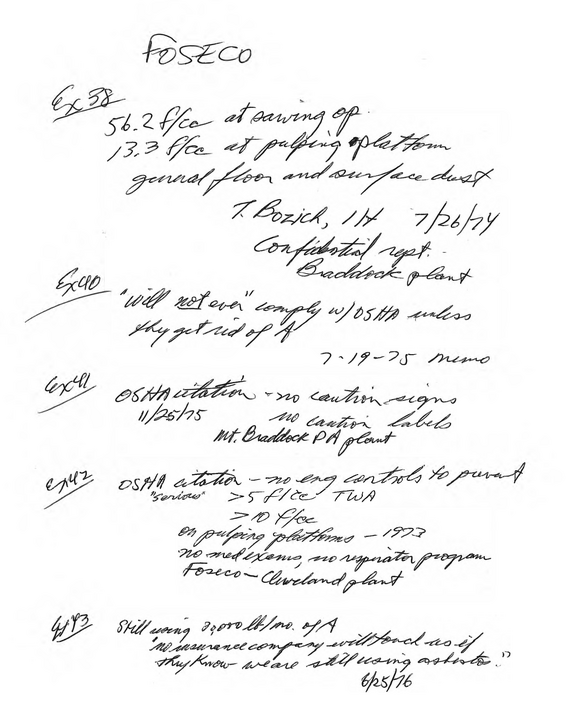 FOSECO
Ex 38
56.2 f/cc at sawing op.
13.3 f/cc at pulping platform
general floor and surface dust
T. Bozich, IH 7/26/74
Confidential rept.
Braddock plant
Ex 40
"will not ever" comply w/OSHA unless
they get rid of A
7-19-75 memo
Ex 41
OSHA citation - no caution signs
11/25/75 no caution labels
Mt. Braddock PA plant
Ex 42
OSHA citation - no eng controls to prevent
"serious" >5 f/cc TWA
>10 f/cc
on pulping platforms - 1973
no med exams, no respirator program
Foseco - Cleveland plant
Ex 43
Still using lb/mo. of A
"no insurance company will touch us if
they know we are still using asbestos."
6/25/76